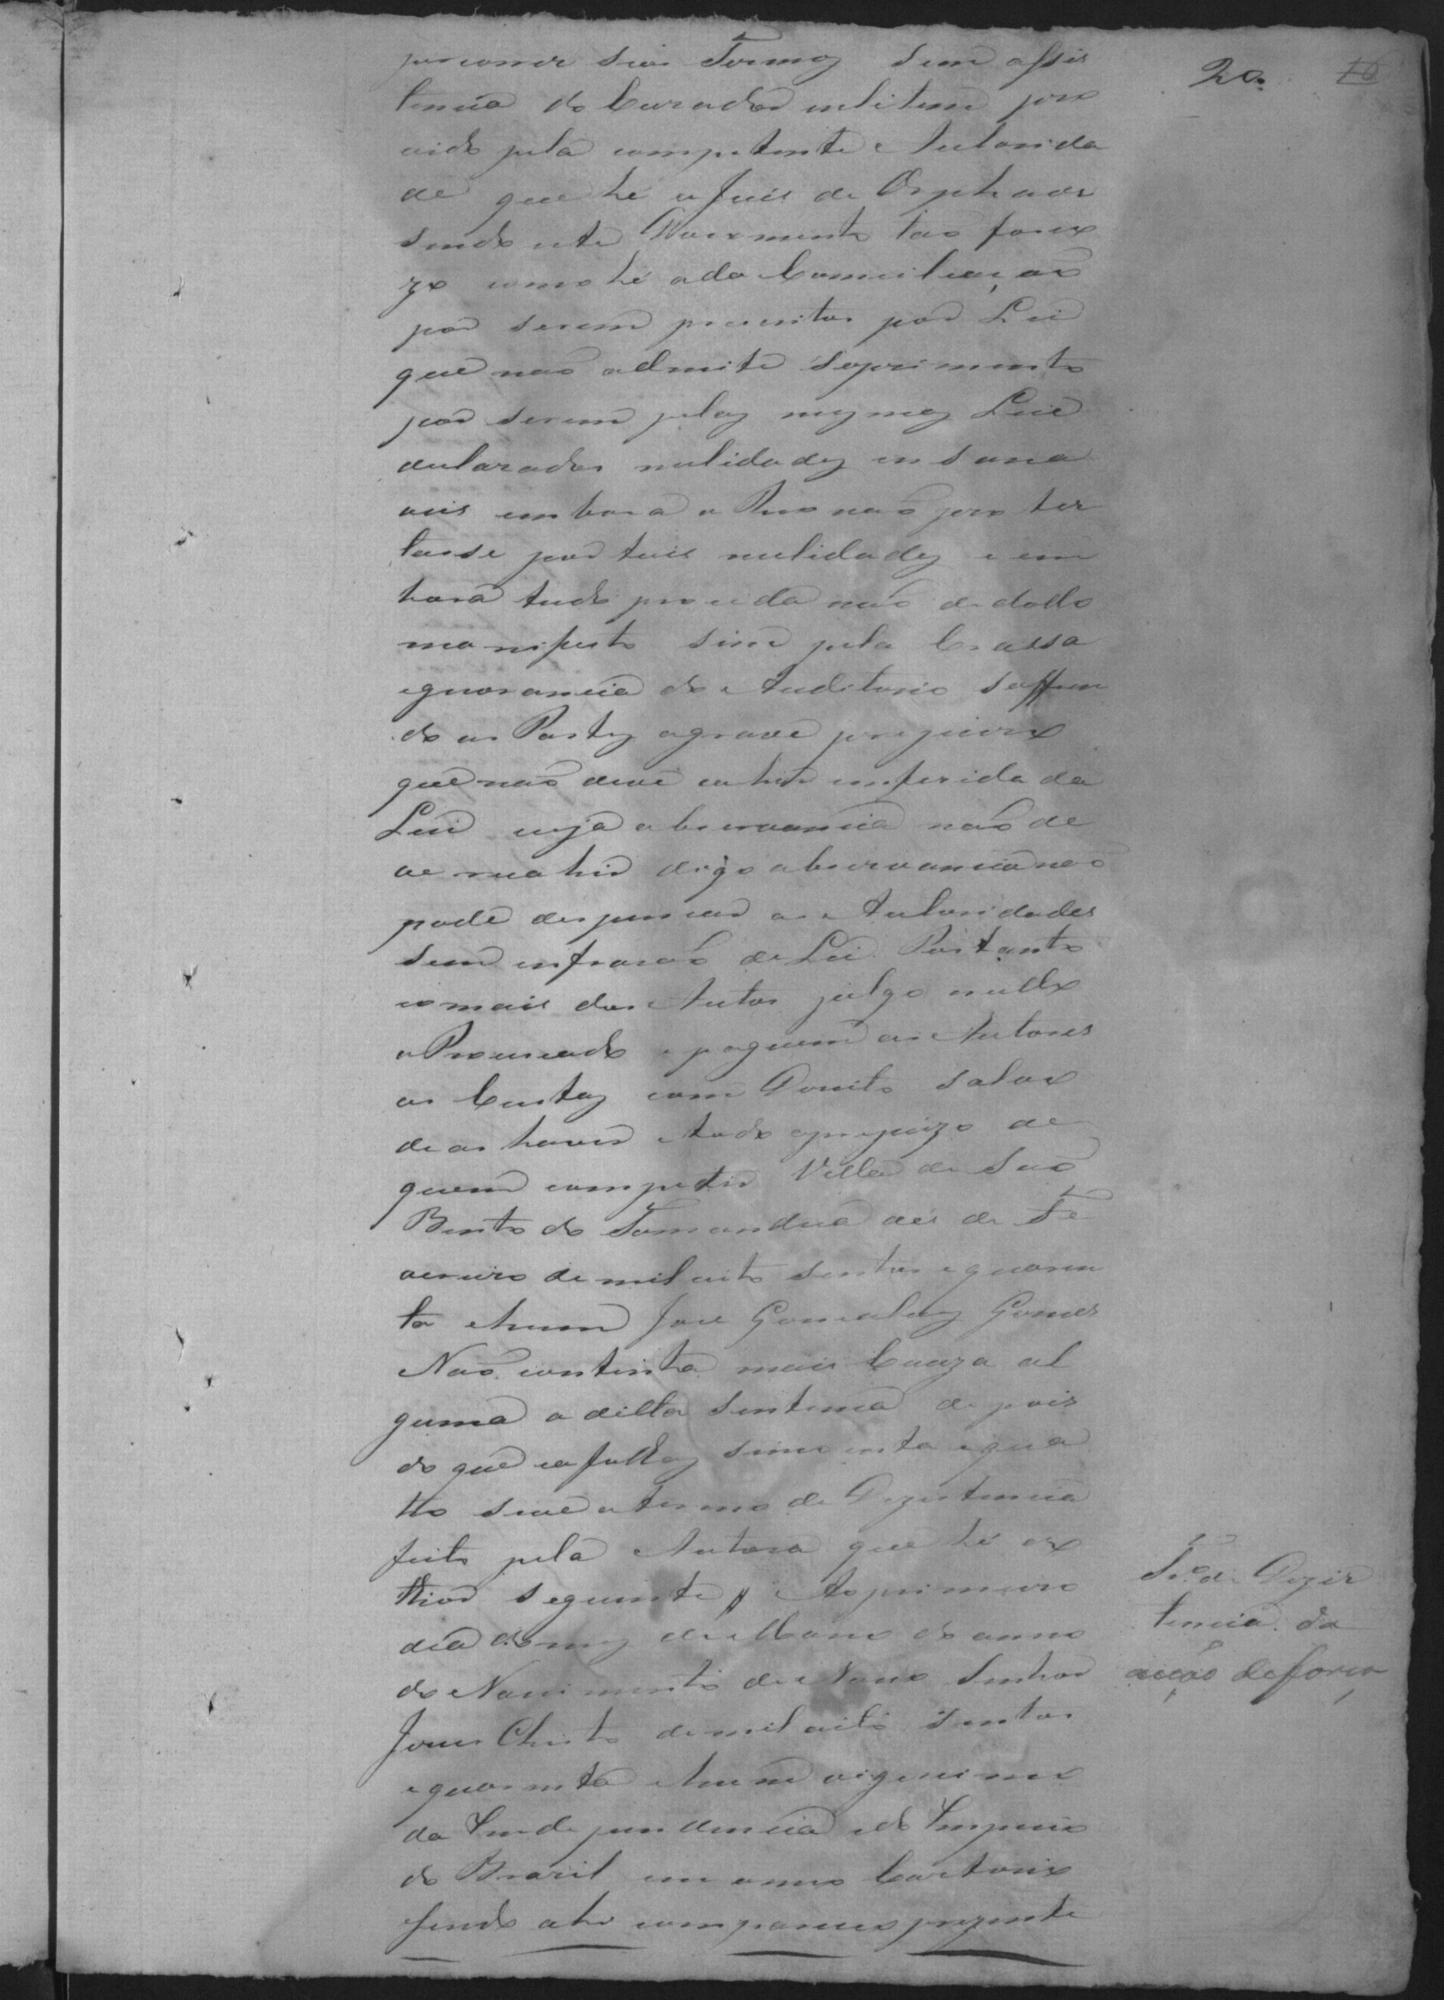 20. 16
seus Termos sem assis
tencia do Curador inlitem pro
vido pela competente Autorida
de que hé o Juis de Orphaos
sendo este tao
como hé a da Conciliaçao
por serem por Lei
que nao admite soprimento
por serem pelas mesmas Leis
declarados nulidades insana
veis embora o Reo nao protes
tasse por tais nulidades e em
bora tudo proceda nao de dollo
manifesto sim pela Crassa
egnorancia do Auditorio soffren
do as Partes a grave prejuizo
que nao deve da
Lei cuja observancia nao de
ve digo observancia nao
pode despensar as Autoridades
sem infracao de Lei. Portanto
e o mais dos Autos julgo nullo
o Processado e paguem os Autores
as Custas com Direito salvo
de as haver e tudo a prejuizo de
quem competir Villa de Sao
Bento do Tamanduá de Fe
vereiro de mil oito sentos e quaren
ta e hum José Gonçalves Gomes
Nao continha mais Couza al
guma a ditta Sentença depois
do que as folhas sincoenta e qua
tro seve o termo de Dezistencia
feito pela Autora que hé do
thior seguinte Ao primeiro
dia do mes de Março do anno
do Nascimento de Nosso Senhor
Jesus Christo de mil oito sentos
e quarenta e hum vigessimo
da Independencia e do Imperio
do Brazil em meu Cartorio
sendo ahi compareceo prezente
To. de Dezis
tencia da
acção de força